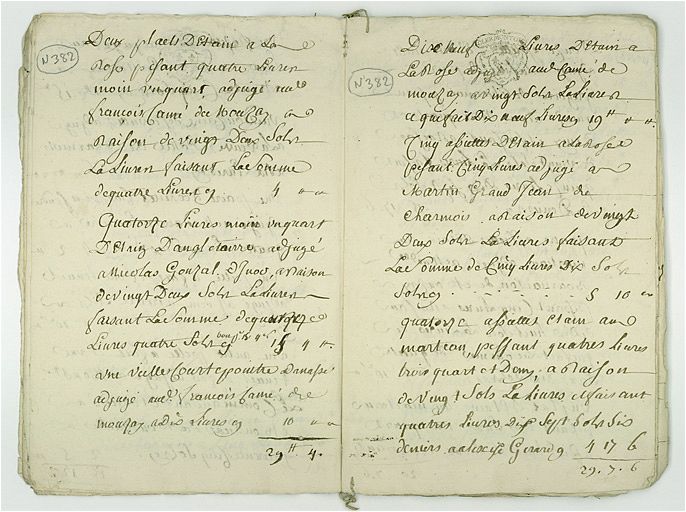 N 382
Deux plaels Detain a La
Rose pesant quatre Livres
moin vnquart adjugé aud
françois Camé de mouzay a
Raison de vingt Deux Sols
La Livres faisant La Somme
de quatre Livres cy 4 " "
Quatorze Livres moin vnquart
Detain Dangletairre adjugé
a Nicolas Gonzal a Raison
de vingt Deux Sols La Livres
faisant La Somme de quatorze
Livres quatre Sols cy 15 4 "
vne vielle Courtepointe
adjugé aud. françois Camé de
mouzay a Dix Livres cy 10 " "
29tt 4.
N 382
Dix neuf Livres Detain a
La Rose aud Camé de
mouzay a vingt Sols La Livres
ce qui fait Dix neuf Livres 19tt " "
Cinq assiettes Detain a La Rose
pesant Cinq Livres adjugé a
Martin Grand Jean de
Charmois a Raison de vingt
Deux Sols La Livres faisant
La Somme de Cinq Livres Dix Sols
5 10 "
quatorze assiettes etain au
marteau, pessant quatres Livres
trois quart et Demy, a Raison
de vingt Sols La Livres faisant
quatres Livres Dix Sept Sols Six
deniers Gerard 4 17 6
29. 7. 6